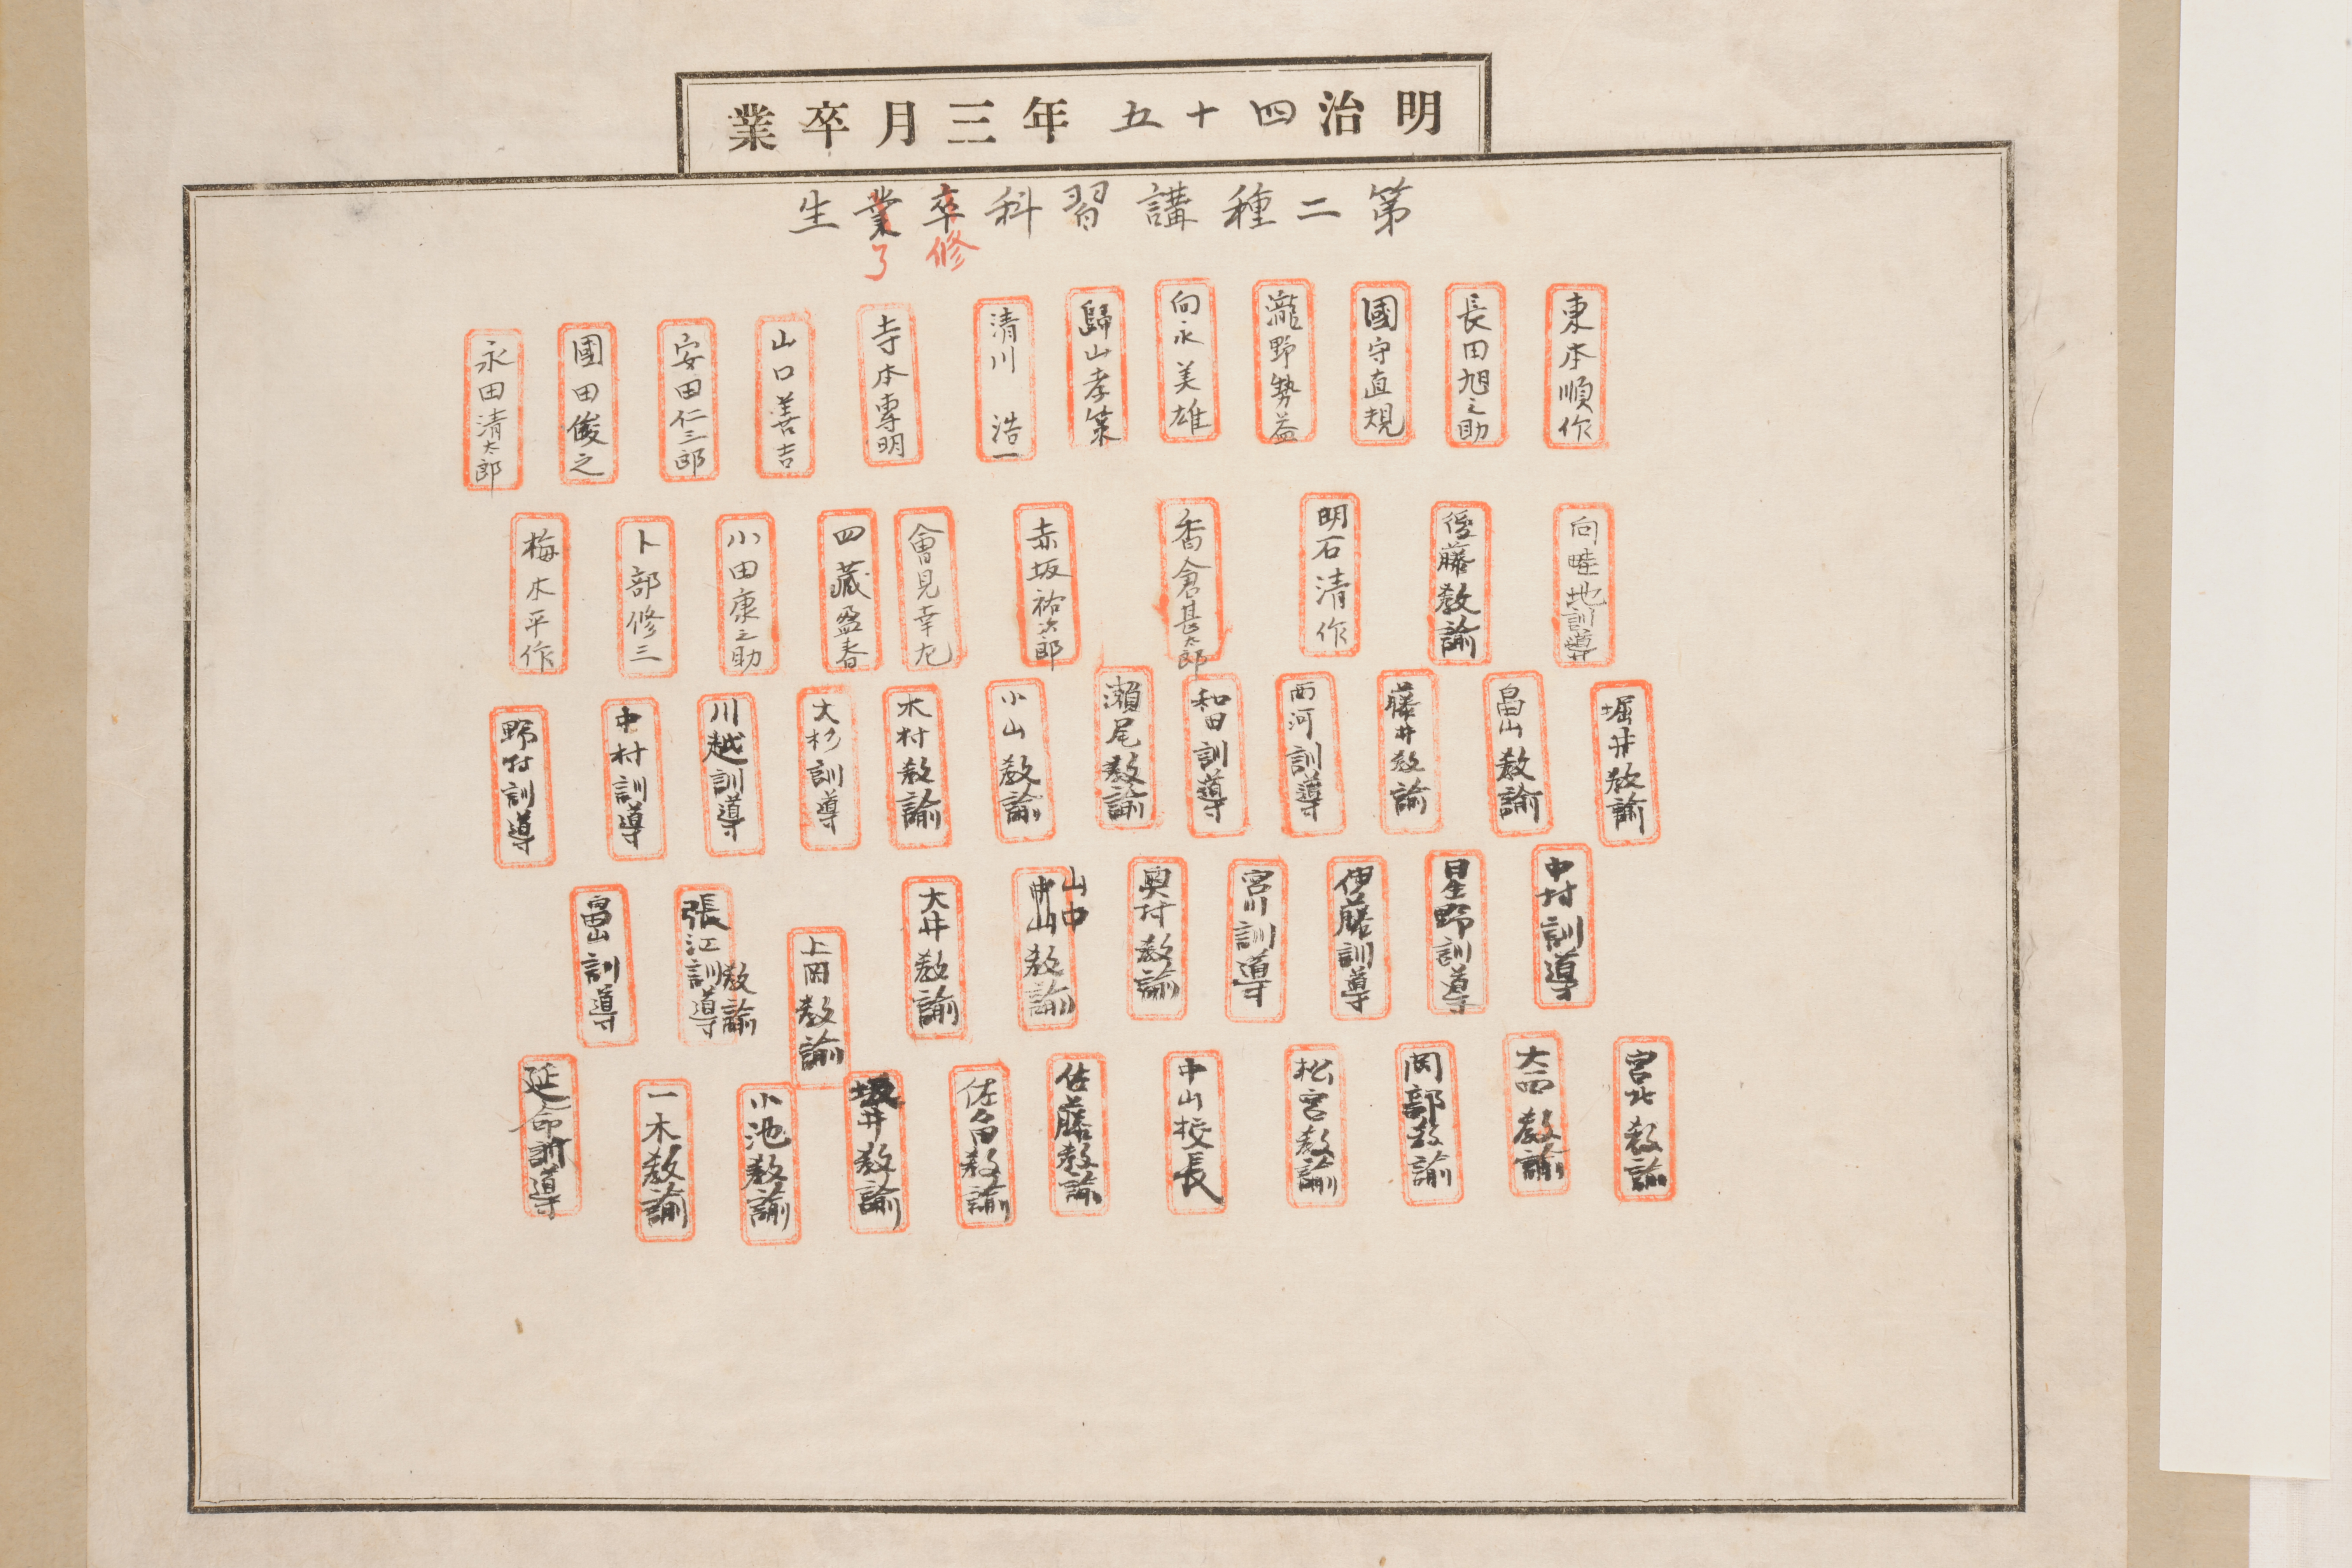 明治四十五年三月卒業
第二種講習科卒業生
修了
東本順作
長田旭之助
國守直規
瀧野勢益
向永美雄
歸山孝策
清川浩一
寺本專明
山口善吉
安田仁三郎
國田俊之
永田清太郎
向畦地訓導
後藤教諭
明石清作
香倉甚太郎
赤坂祐次郎
會見幸九
四藏盈春
小田康之助
卜部修三
梅木平作
堀井教諭
畠山教諭
藤井教諭
西河訓導
和田訓導
瀬尾教諭
小山教諭
木村教諭
大杉訓導
川越訓導
中村訓導
野村訓導
中村訓導
星野訓導
伊藤訓導
宮川訓導
奥村教諭
山中
中山教諭
大井教諭
上岡教諭
教諭
張江訓導
畠山訓導
宮北教諭
大西教諭
岡部教諭
松宮教諭
中山校長
佐藤教諭
佐々田教諭
坂井教諭
小池教諭
一木教諭
延命訓導